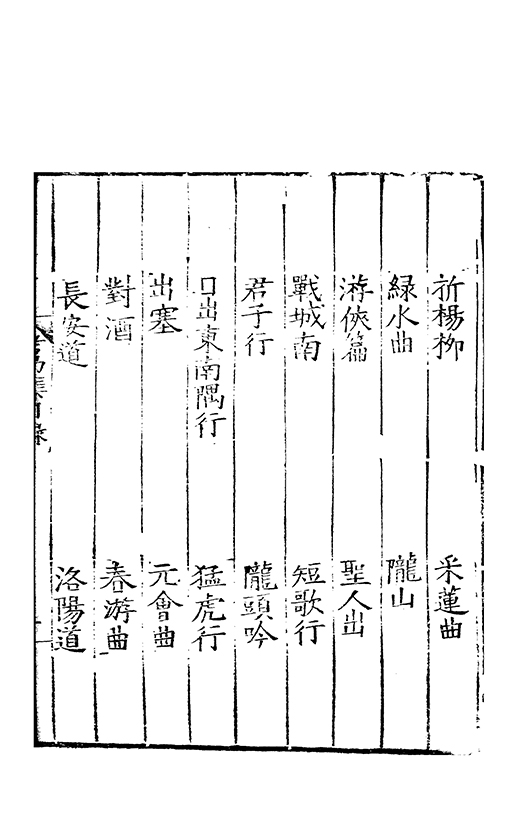 折楊柳 采蓮曲
緑水曲 隴山
游俠篇 聖人出
戰城南 短歌行
君子行 隴頭吟
日出東南隅行 猛虎行
出塞 元會曲
對酒 春游曲
長安道 洛陽道
集目録